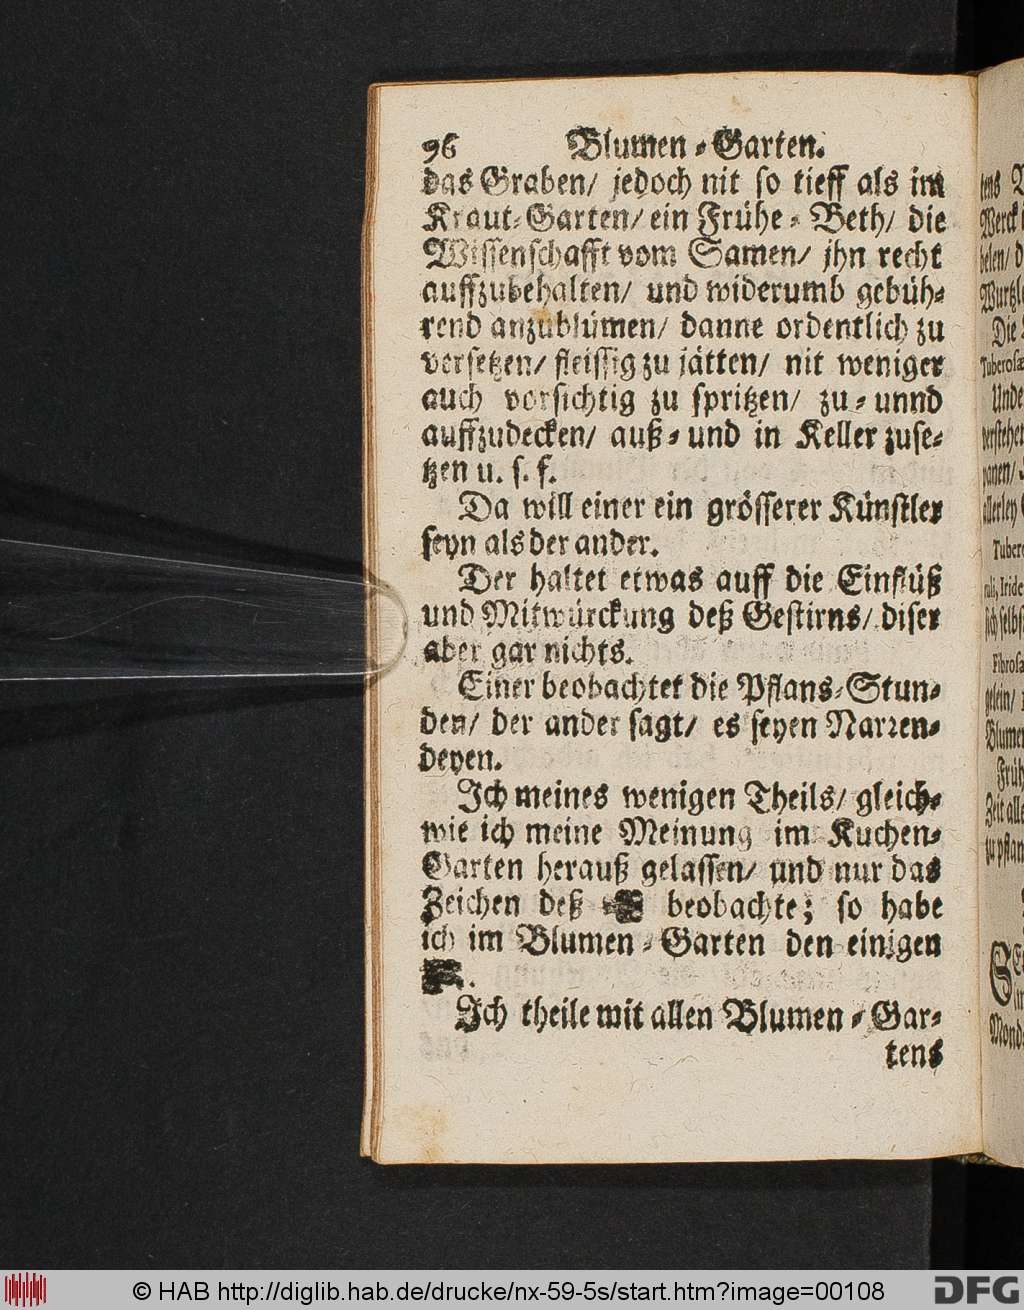 96 Blumen-Garten.
das Graben/ jedoch nit so tieff als im
Kraut-Garten/ ein Frühe-Beth/ die
Wissenschafft vom Samen/ jhn recht
auffzubehalten/ und widerumb gebüh-
rend anzublümen/ danne ordentlich zu
versetzen/ fleissig zu jätten/ nit weniger
auch vorsichtig zu spritzen/ zu- unnd
auffzudecken/ auß- und in Keller zuse-
tzen u. s. f.
Da will einer ein grösserer Künstler
seyn als der ander.
Der haltet etwas auff die Einflüß
und Mitwürckung deß Gestirns/ diser
aber gar nichts.
Einer beobachtet die Pflans-Stun-
den/ der ander sagt/ es seyen Narren-
deyen.
Ich meines wenigen Theils/ gleich-
wie ich meine Meinung im Kuchen-
Garten herauß gelassen/ und nur das
Zeichen deß beobachte; so habe
ich im Blumen-Garten den einigen
.
Ich theile mit allen Blumen-Gar-
tens
tens
Werck
belen/
Wurtzl
Die
Tuberosæ
Unde
verstehet
allerley
Tuber
sich selbs
Fibrosæ
gelein/
Blumen
Früh
Zeit alle
zu pflan
Mond
© HAB http://diglib.hab.de/drucke/nx-59-5s/start.htm?image=00108
DFG